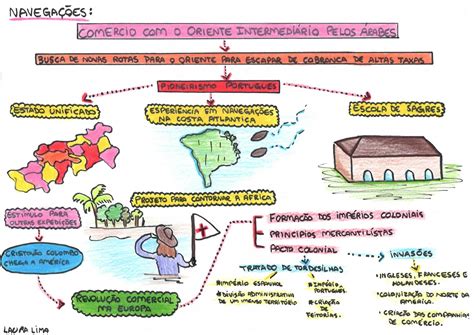 NAVEGAÇÕES:
COMÉRCIO COM O ORIENTE INTERMEDIÁRIO PELOS ÁRABES
BUSCA DE NOVAS ROTAS PARA O ORIENTE PARA ESCAPAR DE COBRANÇA DE ALTAS TAXAS
PIONEIRISMO PORTUGUES
ESTADO UNIFICADO
EXPERIÊNCIA EM NAVEGAÇÕES
NA COSTA ATLANTICA
ESCOLA DE SAGRES
PROJETO PARA CONTORNAR A AFRICA
ESTIMULO PARA
OUTRAS EXPEDIÇÕES
CRISTOVÃO COLOMBO
CHEGA A AMÉRICA
REVOLUÇÃO COMERCIAL
NA EUROPA
FORMAÇÃO DOS IMPÉRIOS COLONIAIS
PRINCIPIOS MERCANTILISTAS
PACTO COLONIAL
TRATADO DE TORDESILHAS
#IMPÉRIO ESPANHOL
#DIVISÃO ADMINISTRATIVA
DE UM IMENSO TERRITÓRIO
#IMPÉRIO
PORTUGUES
#CRIAÇÃO
DE
FEITORIAS.
INVASÕES
•INGLESES, FRANCESES E
HOLANDESES.
•COLONIZAÇÃO DO NORTE DA
AMERICA.
•CRIAÇÃO DAS COMPANHIAS
DE COMÉRCIO.
LAURA LIMA